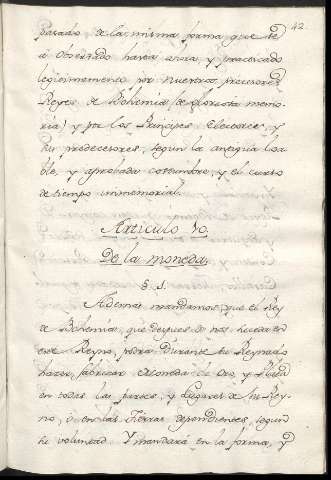 42
pasado, de la misma forma que se
á observado hasta ahora, y practicado
legitimamente por nuestros precesores
Reyes de Bohemia (de gloriosa memo-
ria) y por los Principes Electores, y
sus predecesores, segun la antigua loa-
ble, y aprobada costumbre, y el curso
de tiempo immemorial.
Articulo 10.
De la moneda.
§. 1.
Ademas mandamos, que el Rey
de Bohemia, que despues de nos suceda en
este Reyno, podra durante su Reynado
hazer fabricar Moneda de Oro, y Plata
en todas las partes, y Lugares de su Rey-
no, ó en las Tierras dependientes, segun
su voluntad. Y mandará en la forma, y